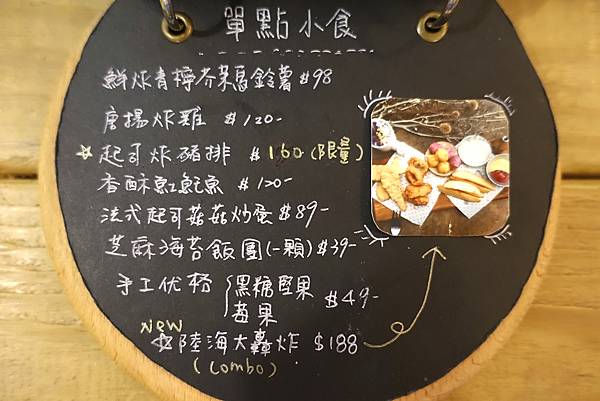 單點小食
鮮炸青檸芥茉馬鈴薯$98
唐揚炸雞 $120-
☆起司炸豬排 $160(限量)
香酥魟魷魚 $120-
法式起司菇菇炒蛋$89-
芝麻海苔飯糰(一顆)$39-
手工优格 {黑糖堅果 $49-
莓果
NEW
☆陸海大轟炸 $188
(Combo)